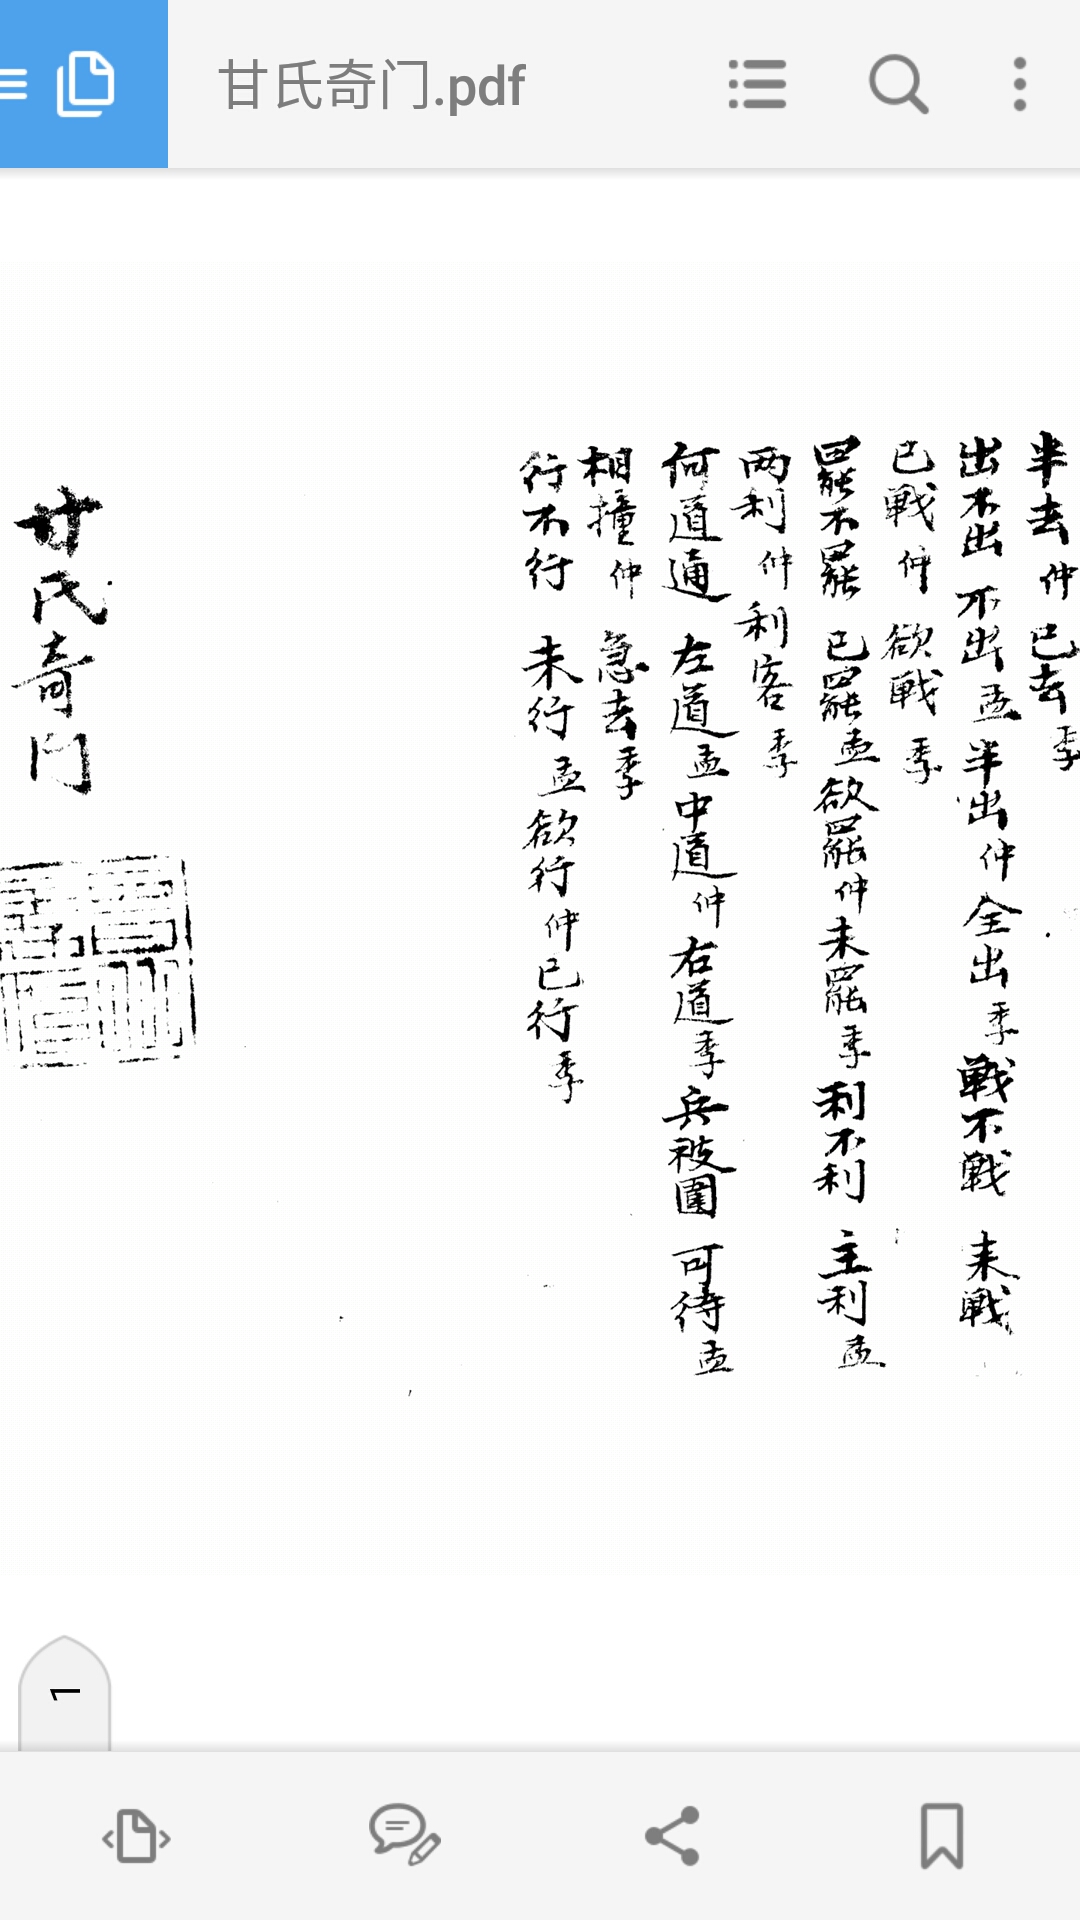 甘氏奇门.pdf
半去仲已去季
出不出 不出孟半出仲全出季戰不戰 未戰
已戰仲 欲戰季
罷不罷 已罷孟欲罷仲未罷季利不利 主利孟
两利仲利客季
何道通 左道孟中道仲右道季兵被圍 可待孟
相撞仲 急去季
行不行 未行孟欲行仲已行季
甘氏奇门
1